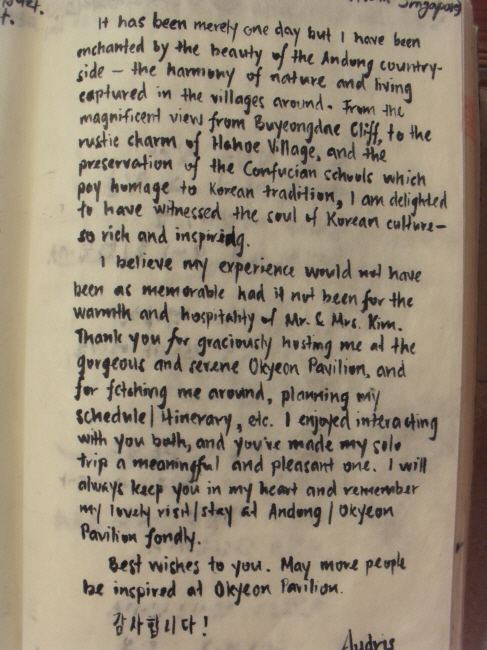 Singapore
t.
It has been merely one day but I have been
enchanted by the beauty of the Andong country-
side – the harmony of nature and living
captured in the villages around. From the
magnificent view from Buyeongdae Cliff, to the
rustic charm of Hahoe Village, and the
preservation of the Confucian schools which
pay homage to Korean tradition, I am delighted
to have witnessed the soul of Korean culture –
so rich and inspiring.
I believe my experience would not have
been as memorable had it not been for the
warmth and hospitality of Mr. & Mrs. Kim.
Thank you for graciously hosting me at the
gorgeous and serene Okyeon Pavilion, and
for fetching me around, planning my
schedule/itinerary, etc. I enjoyed interacting
with you both, and you've made my solo
trip a meaningful and pleasant one. I will
always keep you in my heart and remember
my lovely visit/stay at Andong/Okyeon
Pavilion fondly.
Best wishes to you. May more people
be inspired at Okyeon Pavilion.
감사합니다!
Audris